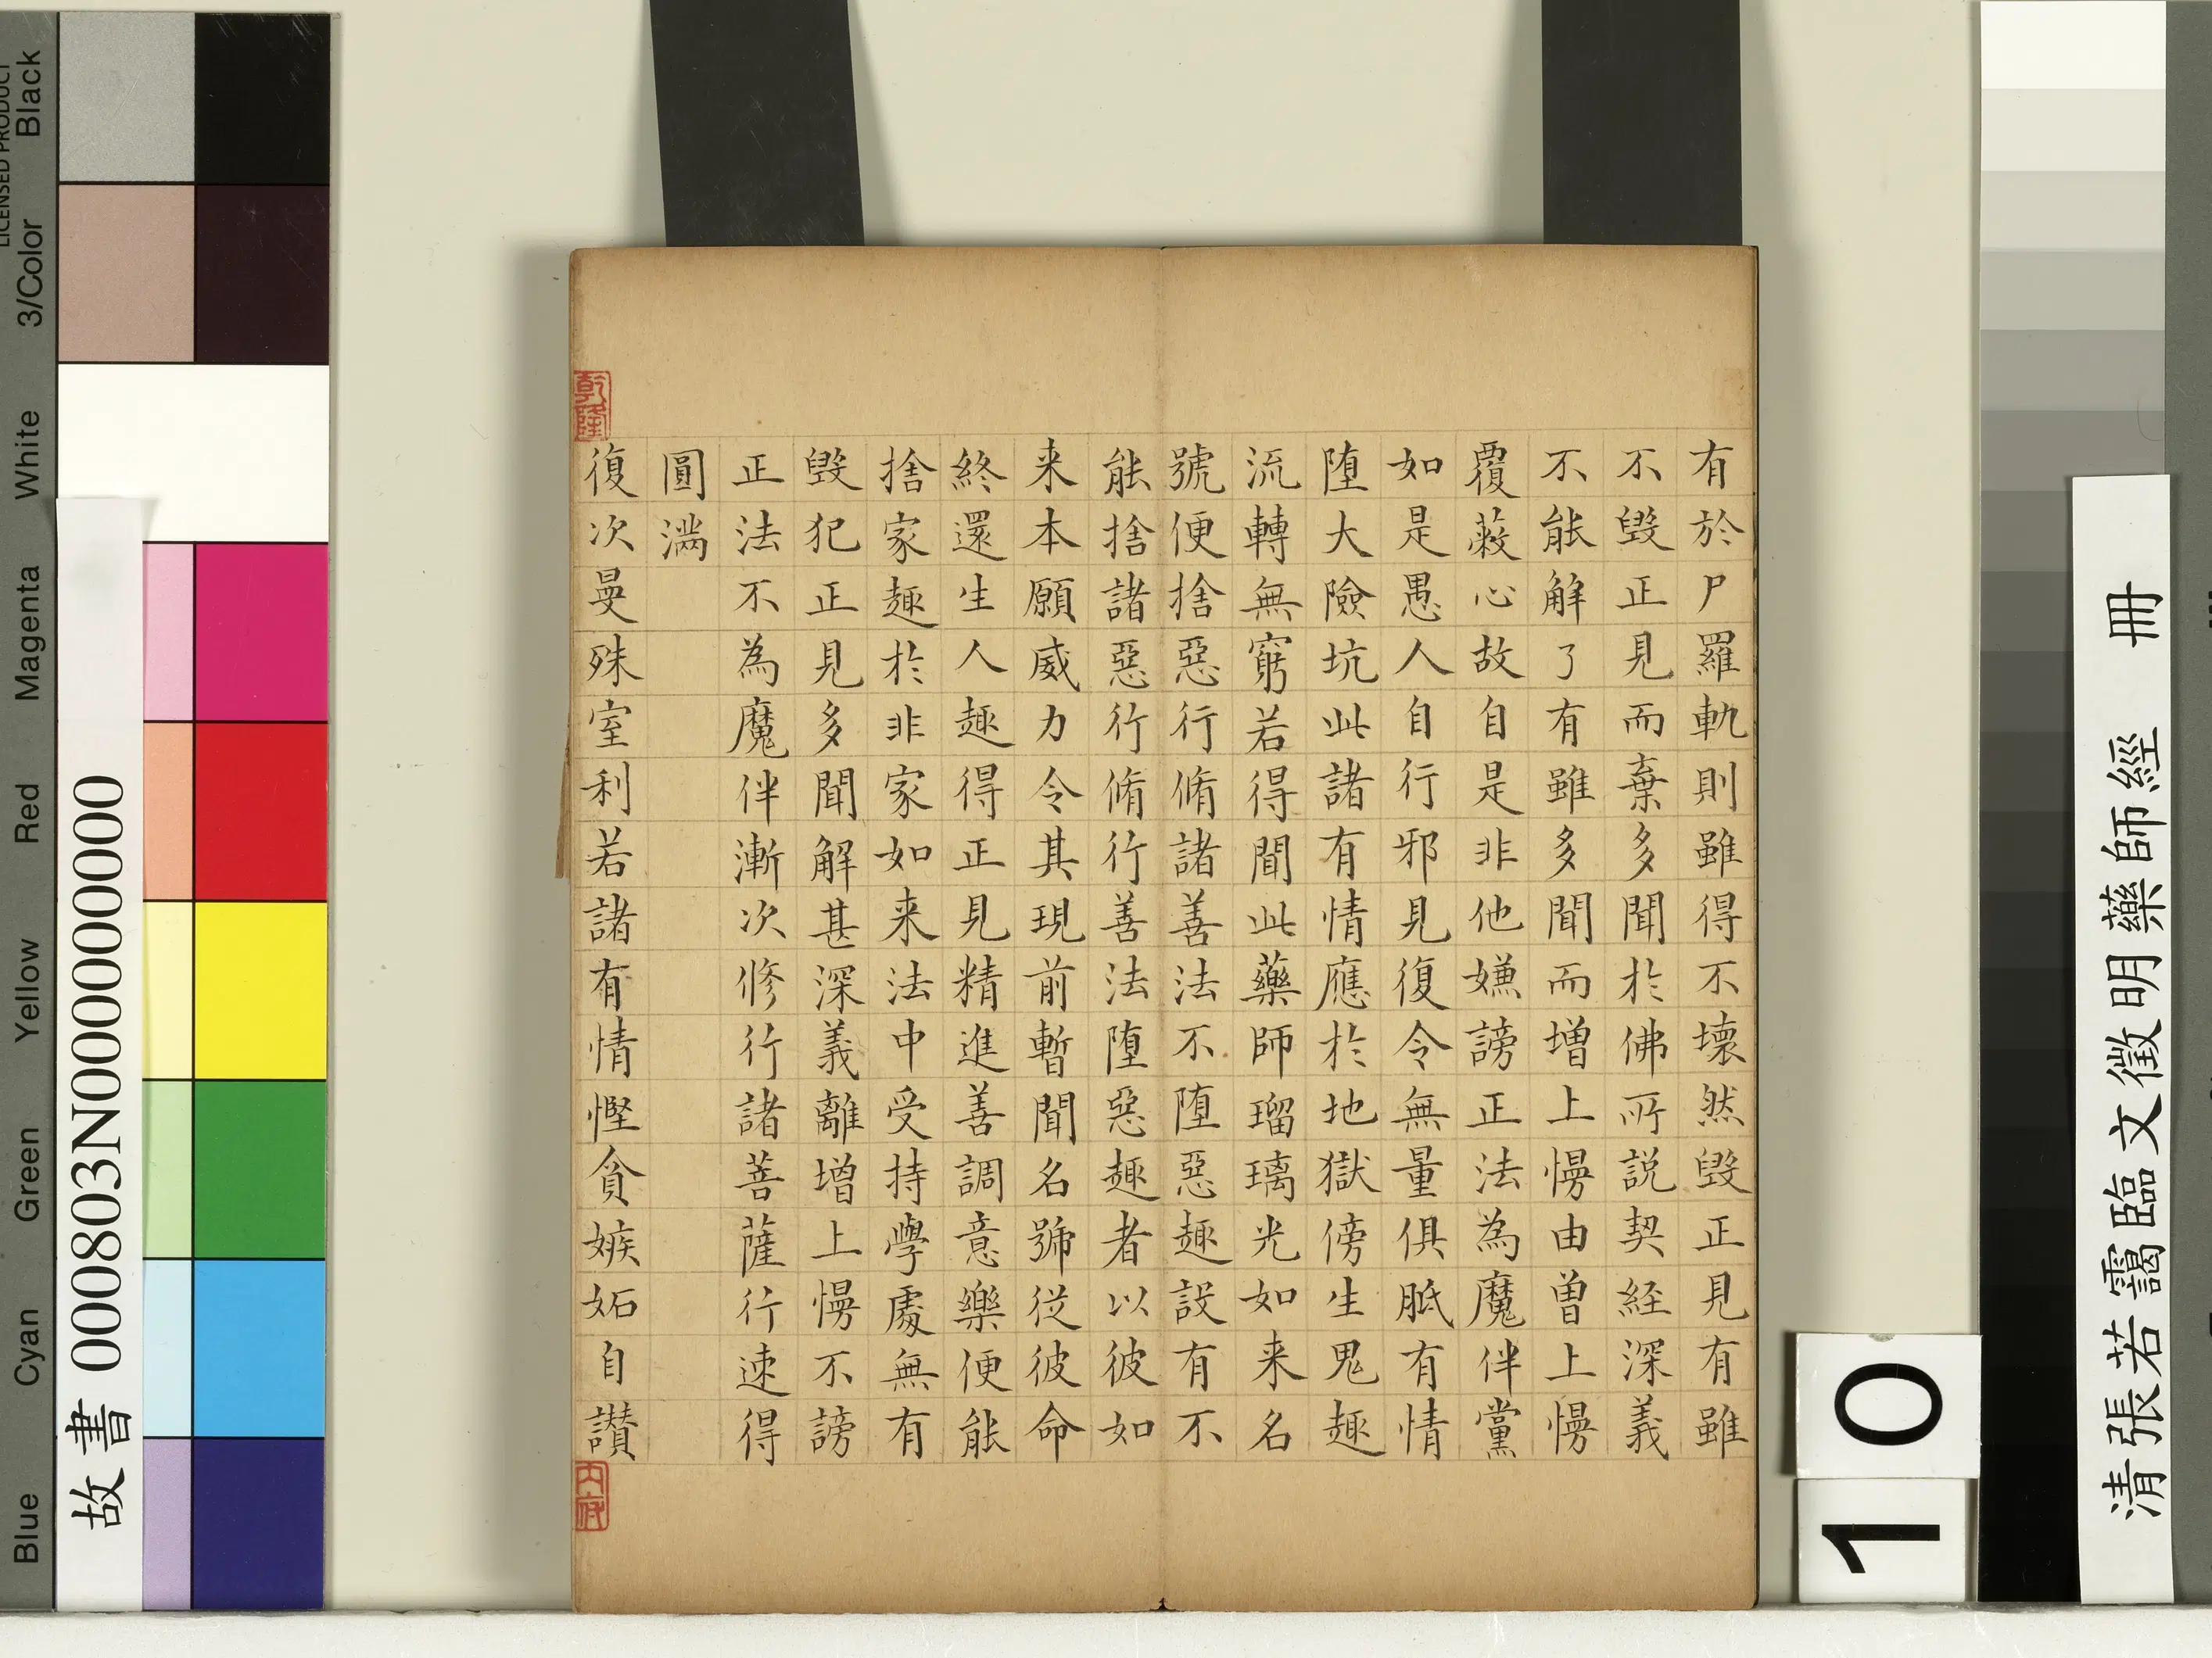 有於尸羅軌則雖得不壞然毀正見有雖
不毀正見而棄多聞於佛所說契経深義
不能解了有雖多聞而增上慢由曽上慢
覆蔽心故自是非他嫌謗正法為魔伴黨
如是愚人自行邪見復令無量俱胝有情
堕大險坑此諸有情應於地獄傍生鬼趣
流轉無窮若得聞此藥師瑠璃光如来名
號便捨惡行脩諸善法不堕惡趣設有不
能捨諸惡行脩行善法堕惡趣者以彼如
来本願威力令其現前暫聞名號従彼命
終還生人趣得正見精進善調意樂便能
捨家趣於非家如来法中受持學處無有
毀犯正見多聞解甚深義離增上慢不謗
正法不為魔伴漸次修行諸菩薩行速得
圓滿
復次曼殊室利若諸有情慳貪嫉妬自讃
乾隆
內府
清張若靄臨文徵明藥師經 冊
10
故書 000803N000000000
Blue
Cyan
Green
Yellow
Red
Magenta
White
3/Color
Black
LICENSED PRODUCT